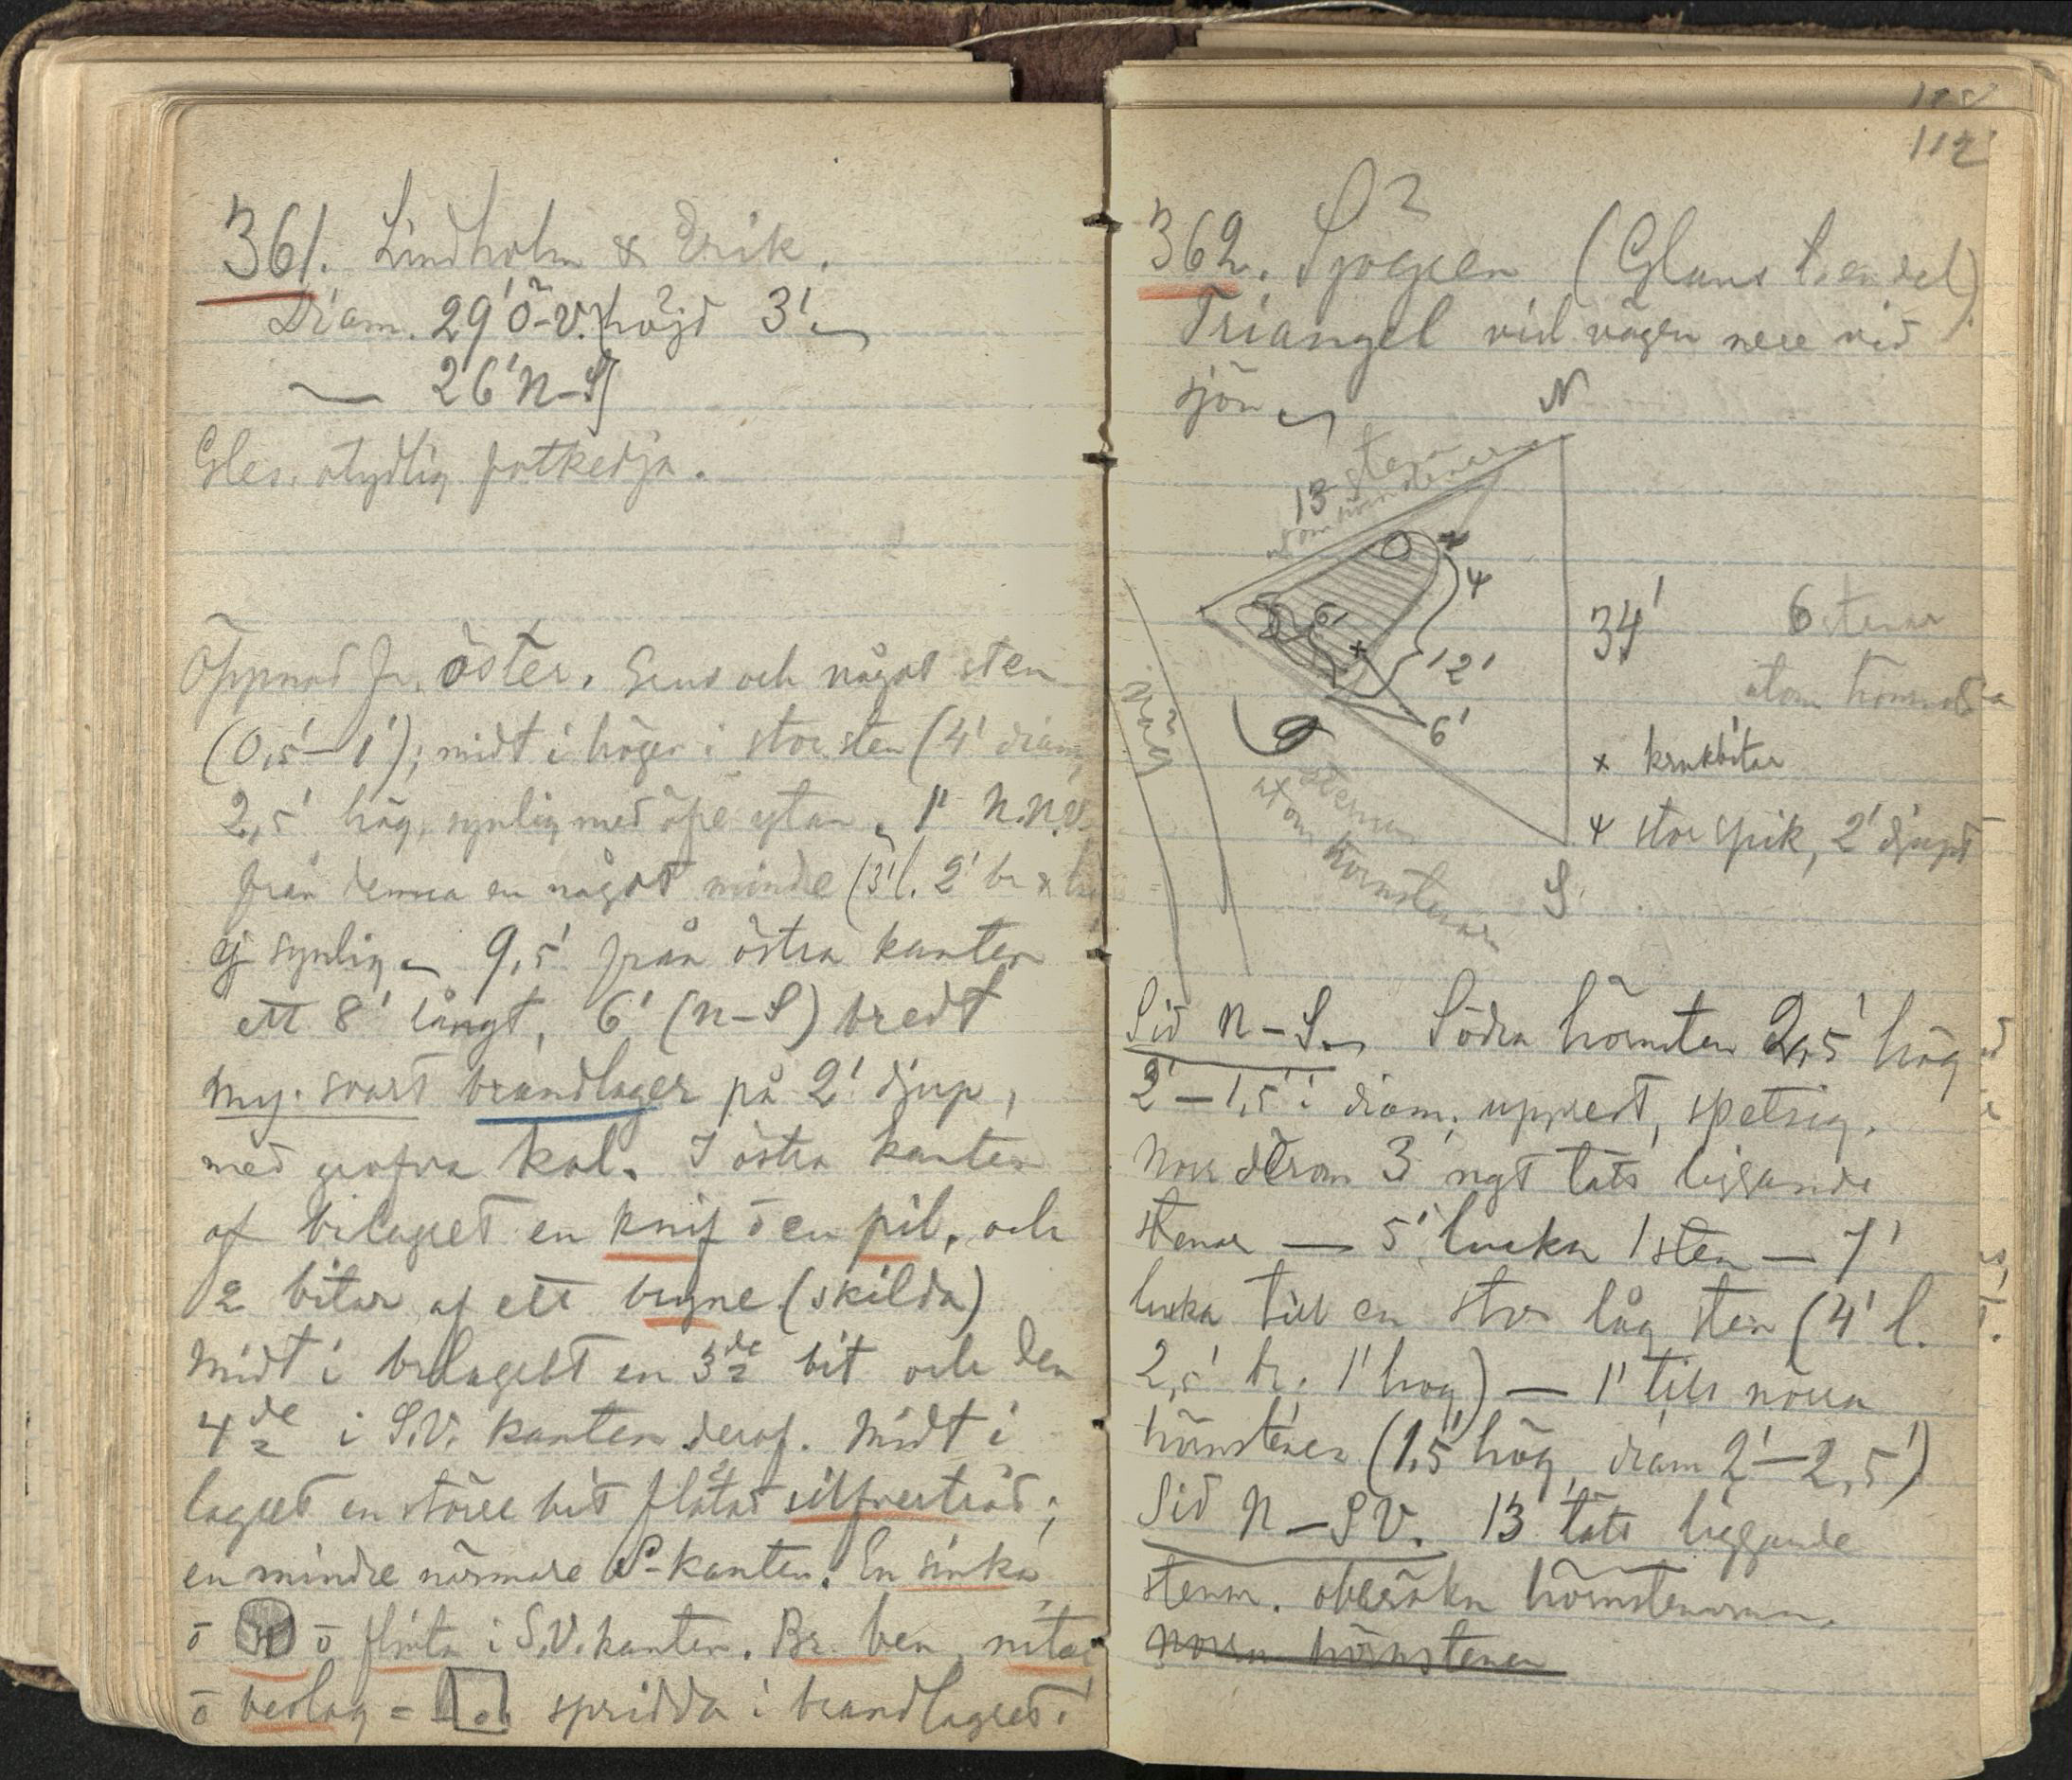 361. Lindholm & Erik.
Diam. 29' Ö-V. höjd 3'.
— 26' N-S
Gles, otydlig fotkedja.
Öppnad fr. öster. Grus och något sten
(0,5'-1'); midt i högen i stor sten (4' diam,
2,5' hög, synlig med öfre ytan, 1' N.N.V.
från denna en något mindre (3' l. 2' br &
ej synlig. 9,5' från östra kanten
ett 8' långt, 6' (N-S) bredt
my. svart brandlager på 2' djup,
med grofva kol. I östra kanten
af brlagret en knif o en pil, och
2 bitar af ett bryne (skilda)
Midt i brlagret en 3de bit och den
4de i S.V. kanten deraf. Midt i
lagret en större bit flätad silfvertråd;
en mindre närmare S-kanten. En sinka
o o flinta i S.V. kanten. Br. ben, nitar
o beslag = spridda i brandlagret.
112
362. Sjögren (Glans
Triangel vid vägen nere vid
sjön
N
13 stenar
utom hörnstenar
4
12'
6'
34'
6 stenar
utom hörnste
väg
9
stenar
utom
hörnstenar
x krukbitar
stor spik, 2' djupt
S
Sid N-S. Södra hörnsten 2,5' hög
2'-1,5' i diam, upprest, spetsig.
Norr derom 3 ngt tätt liggande
stenar — 5' lucka 1 sten — 7'
lucka till en stor låg sten (4' l.
2,5' br. 1' hög) — 1' till norra
hörnstenen (1,5' hög, diam 2'-2,5')
Sid N-SV. 13 tätt liggande
stenar. oberäkn hörnstenarna.
Norra hörnstenen